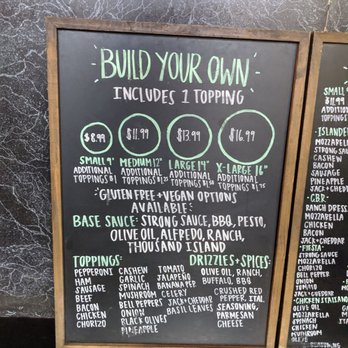 BUILD YOUR OWN
INCLUDES 1 TOPPING
$8.99
$11.99
$13.99
$16.99
SMALL 9"
ADDITIONAL
TOPPINGS $1
MEDIUM 12"
ADDITIONAL
TOPPINGS
LARGE 14"
ADDITIONAL
TOPPINGS
X-LARGE 16"
ADDITIONAL
TOPPINGS $1.75
GLUTEN FREE + VEGAN OPTIONS
AVAILABLE
BASE SAUCE: STRONG SAUCE, BBQ, PESTO,
OLIVE OIL, ALFREDO, RANCH,
THOUSAND ISLAND
TOPPINGS:
PEPPERONI
HAM
SAUSAGE
BEEF
BACON
CHICKEN
CHORIZO
CASHEW
GARLIC
SPINACH
MUSHROOM
BELL PEPPERS
ONION
BLACK OLIVES
PINEAPPLE
TOMATO
JALAPENO
BANANA PEP
CELERY
JACK+CHEDDAR
BASIL LEAVES
DRIZZLES + SPICES:
OLIVE OIL, RANCH,
BUFFALO, BBQ
CRUSHED RED
PEPPER, ITAL.
SEASONING,
PARMESAN
CHEESE
SMALL
$11.99
ADDITIONAL
ISLANDE
STRONG SAU
CASHEW
BACON
SAUSAGE
PINEAPPLE
JACK+CHED
C.B.R.
RANCH DRESS
MOZZARELLA
CHICKEN
BACON
JACK+CHEDDAR
FIESTA
STRONG SAUCE
MOZZARELLA
CHORIZO
BELL PEPPER
ONION
JACK+CHEDDAR
CHICKEN ITALIANO
OLIVE OIL
MOZZARELLA
SPINACH
CHICKEN
MUSHROOM
ONION